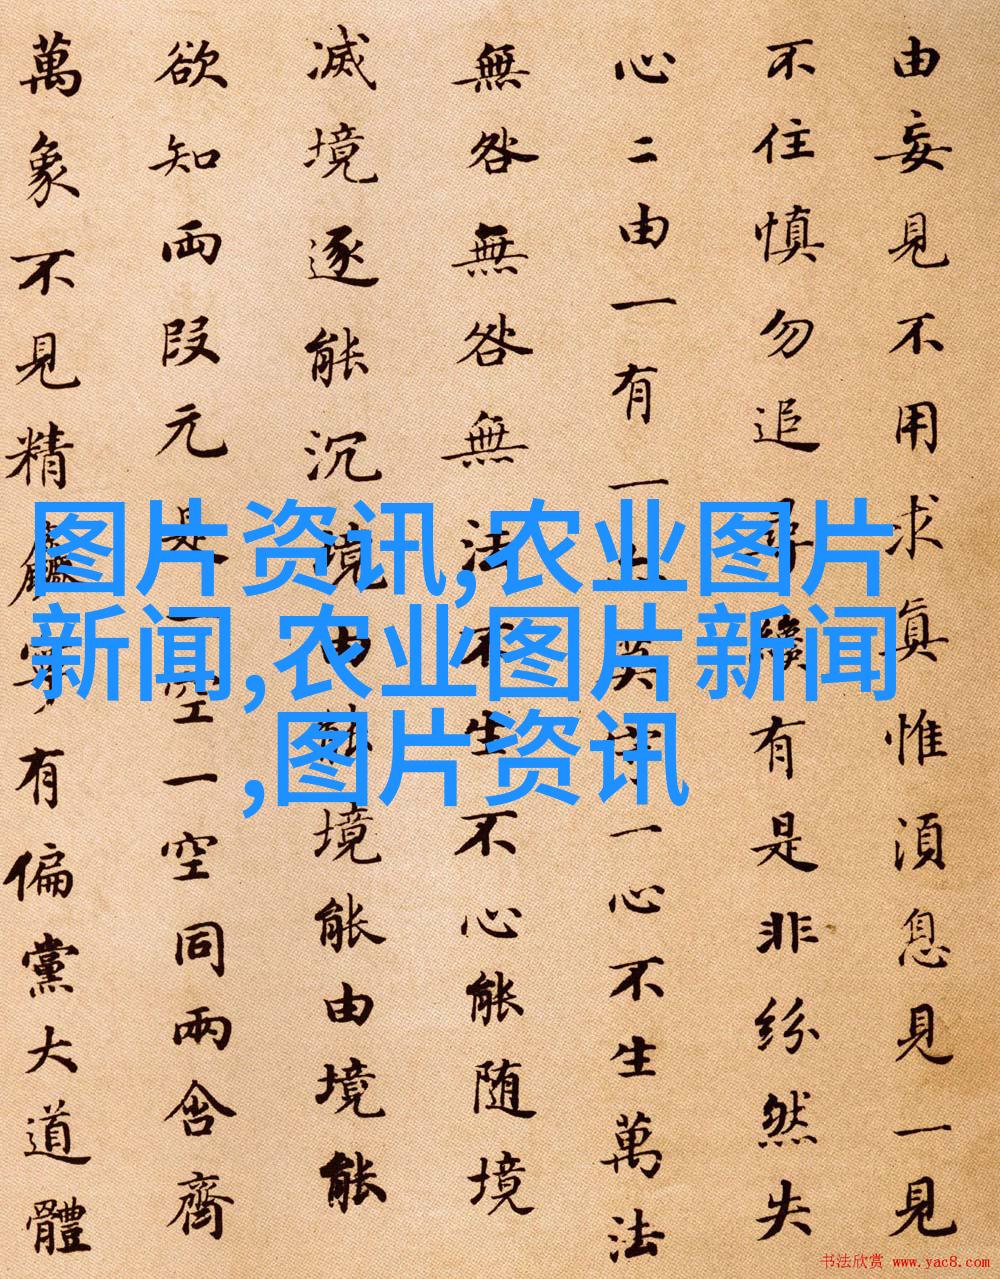 由妄見不用求眞惟須息見一見
不住慎勿追尋纔有是非紛然失
心二由一有一亦莫守一心不生萬法
無咎無咎無法不生不心能随境
滅境逐能沉境由能境能由境能
欲知兩段元是一空一空同兩含齊
萬象不見精麤寧有偏黨大道體
图片资讯,农业图片
新闻,农业图片新闻
,图片资讯
书法欣赏 www.yac8.com